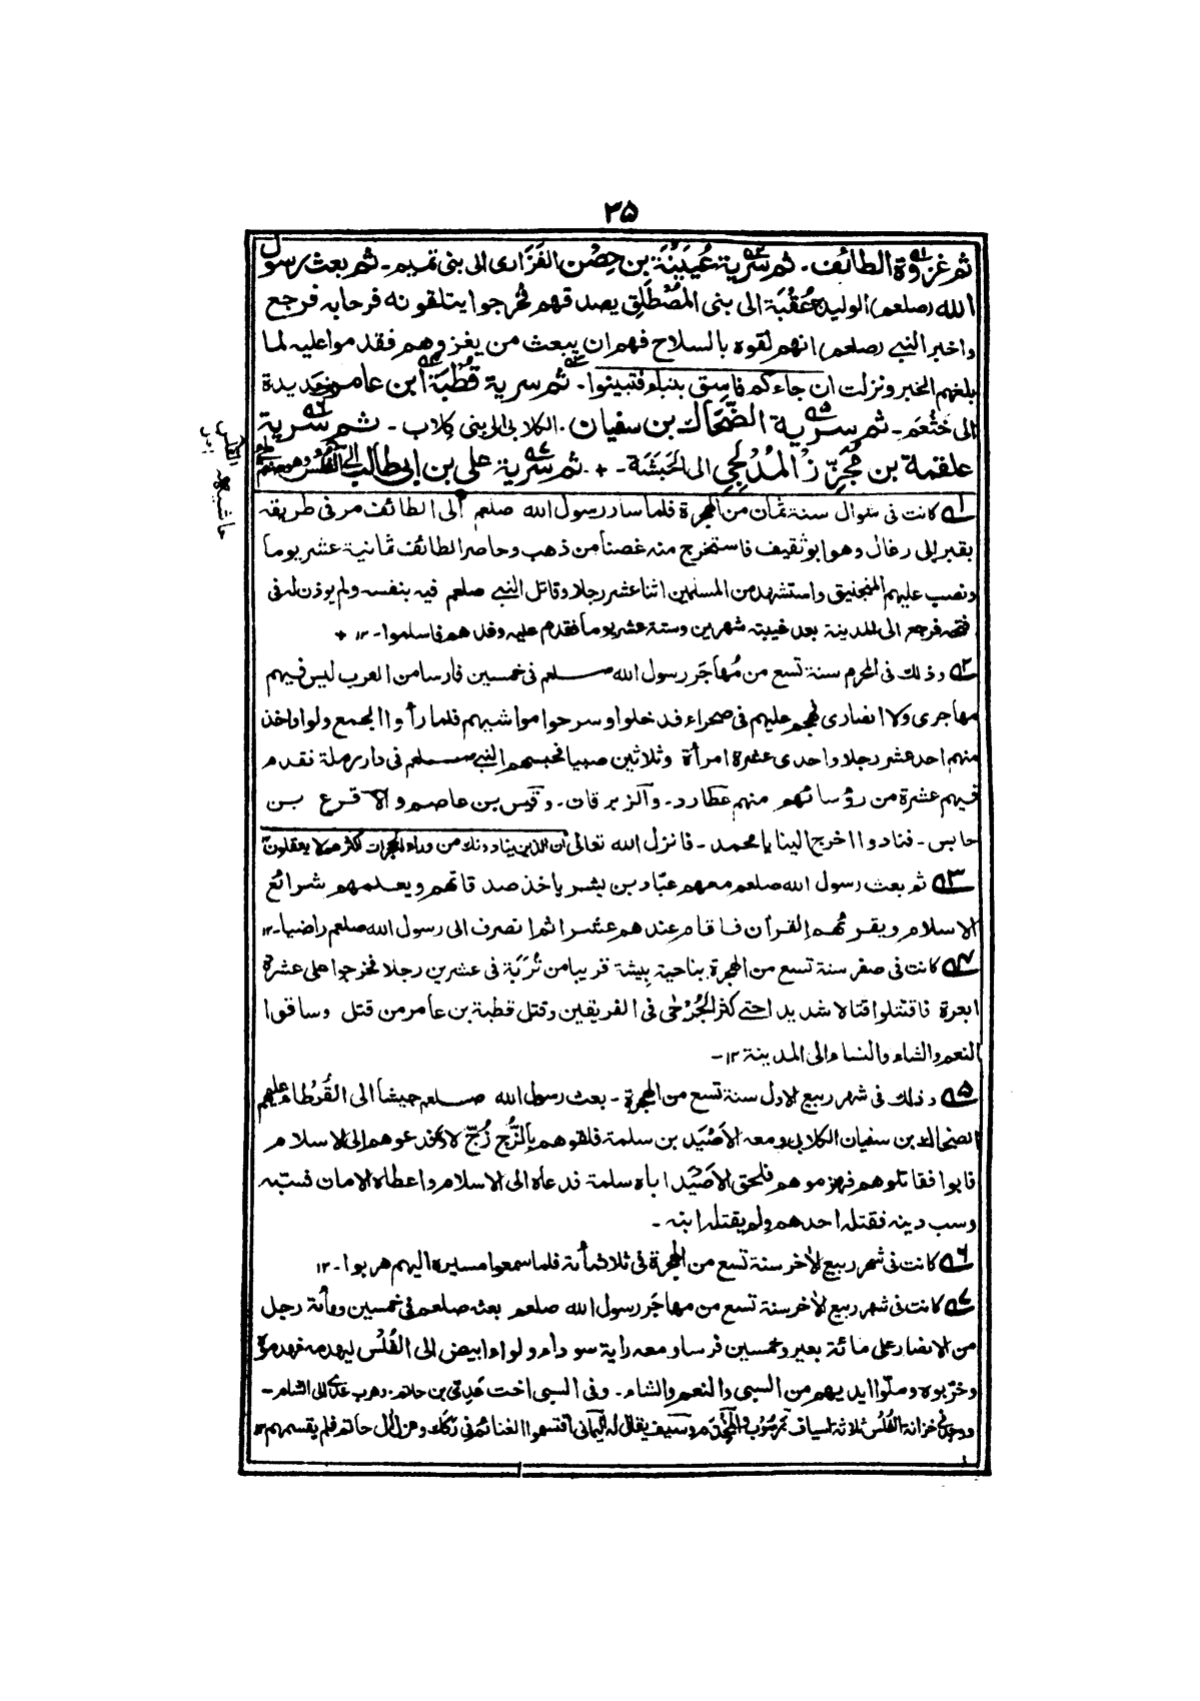 ٣٥
ثم غزوة الطائف۔ ثم سرية عُيَيْنَة بن حِصْن الفَزَارى الى بنى تميم۔ ثم بعث رسول
الله (صلعم) الوليد بن عُقْبَة الى بنى المُصْطَلِق يصدقهم فخرجوا يتلقونه فرحا به فرجع
واخبر النبي (صلعم) انهم لقوه بالسلاح فهم ان يبعث من يغزوهم فقدموا عليه لما
بلغهم الخبر ونزلت ان جاءكم فاسق بنبإ فتبينوا۔ ثم سرية قُطْبَة ابن عامر بن حديدة
الى خَثْعَم۔ ثم سرية الضَّحَّاك بن سفيان۔ الكلابى الى بنى كِلاب۔ ثم سرية
علقمة بن مُجَزِّز المُدْلِجِي الى الحَبَشَة۔ + ۔ ثم سرية على بن ابى طالب الى الفُلْس وهو صنم
الفلس
حاشيه
١ كانت فى شوال سنة ثمان من الهجرة فلما سار رسول الله صلعم الى الطائف مر فى طريقه
بقبر ابى رغال وهو ابو ثقيف فاستخرج منه غصنا من ذهب وحاصر الطائف ثمانية عشر يوما
ونصب عليهم المنجنيق واستشهد من المسلمين اثنا عشر رجلا وقاتل النبي صلعم فيه بنفسه ولم يوذن له فى
فتحه فرجع الى المدينة بعد غيبته شهرين وستة عشر يوما فقدم عليه وفدهم فاسلموا۔ ١٢ +
٢ وذلك فى المحرم سنة تسع من مُهاجَر رسول الله صلعم فى خمسين فارسا من العرب ليس فيهم
مهاجرى ولا انصارى فهجم عليهم فى صحراء قد خلوا وسرحوا مواشيهم فلما رأوا الجمع ولوا واخذ
منهم احد عشر رجلا واحدى عشرة امرأة وثلاثين صبيا فحبسهم النبي صلعم فى دار رملة فقدم
فيهم عشرة من رؤسائهم منهم عطارد۔ والزبرقان۔ وقيس بن عاصم والاقرع بن
حابس۔ فنادوا اخرج الينا يا محمد۔ فانزل الله تعالى ان الذين ينادونك من وراء الحجرات اكثرهم لا يعقلون
٣ ثم بعث رسول الله صلعم معهم عبّاد بن بشر ياخذ صدقاتهم ويعلمهم شرائع
الاسلام ويقرئهم القرآن فاقام عندهم عشرا ثم انصرف الى رسول الله صلعم راضيا۔ ١٢
٤ كانت فى صفر سنة تسع من الهجرة بناحية بِيشة قريبا من تُرَبَة فى عشرين رجلا فخرجوا على عشرة
ابعرة فاقتتلوا قتالا شديدا حتى كثر الجُرْحٰى فى الفريقين وقتل قطبة بن عامر من قتل وساقوا
النعم والشاء والنساء الى المدينة ١٢۔
٥ وذلك فى شهر ربيع الاول سنة تسع من الهجرة۔ بعث رسول الله صلعم جيشا الى القُرَطاء عليهم
الضحاك بن سفيان الكلابى ومعه الاَصْيَد بن سلمة فلقوهم بالزُّج زُجّ لاوة فدعوهم الى الاسلام
فابوا فقاتلوهم فهزموهم فلحق الاَصْيَد اباه سلمة فدعاه الى الاسلام واعطاه الامان فسبّه
وسب دينه فقتله احدهم ولم يقتله ابنه۔
٦ كانت فى شهر ربيع الاٰخر سنة تسع من الهجرة فى ثلاثمأئة فلما سمعوا مسيره اليهم هربوا۔ ١٢
٧ كانت فى شهر ربيع الاٰخر سنة تسع من مهاجَر رسول الله صلعم بعثه صلعم فى خمسين ومأئة رجل
من الانصار على مائة بعير وخمسين فرسا ومعه راية سوداء ولواء ابيض الى الفُلْس ليهدمه فهدموه
وخرّبوه وملّوا ايديهم من السبى والنعم والشاء۔ وفى السبى اخت عَدِىّ بن حاتم۔ وهرب عَدِىّ الى الشام۔
ووجد فى خزانة الفُلْس ثلاثة اسياف رَسُوب والمِخْذَم وسيف يقال له اليمانى اقتسموا الغنائم فى رَكَك وعزل اٰل حاتم فلم يقسمهم ١٢